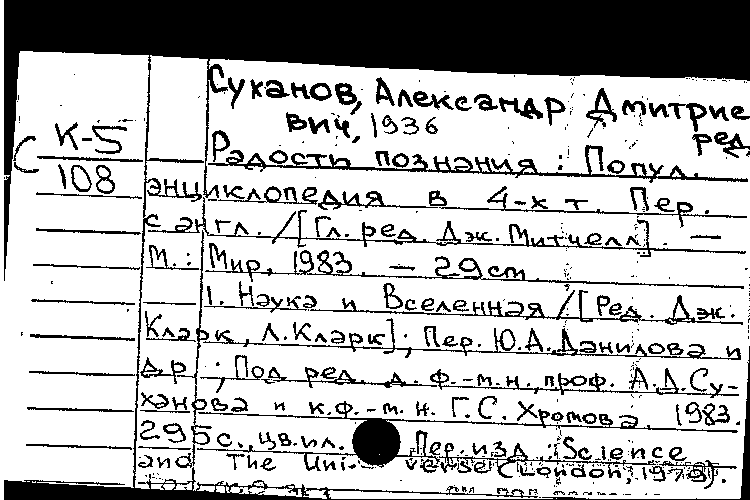 Суханов, Александр Дмитрие
вич, 1936
ред.
К-5
С
108
Радости познания : Попул.
энциклопедия в 4-х т. Пер.
с англ. / [Гл. ред. Дж. Митчелл]. —
М. : Мир, 1983. — 29 cm.
1. Наука и Вселенная / [Ред. Дж.
Кларк, Л. Кларк]; Пер. Ю.А. Данилова и
др ; Под ред. д. ф.-м. н., проф. А.Д. Су-
ханова и к.ф.-м. н. Г.С. Хромова. 1983.
295 с., цв. ил. Пер. изд.: Science
and The Uni- verse (London, 1979).